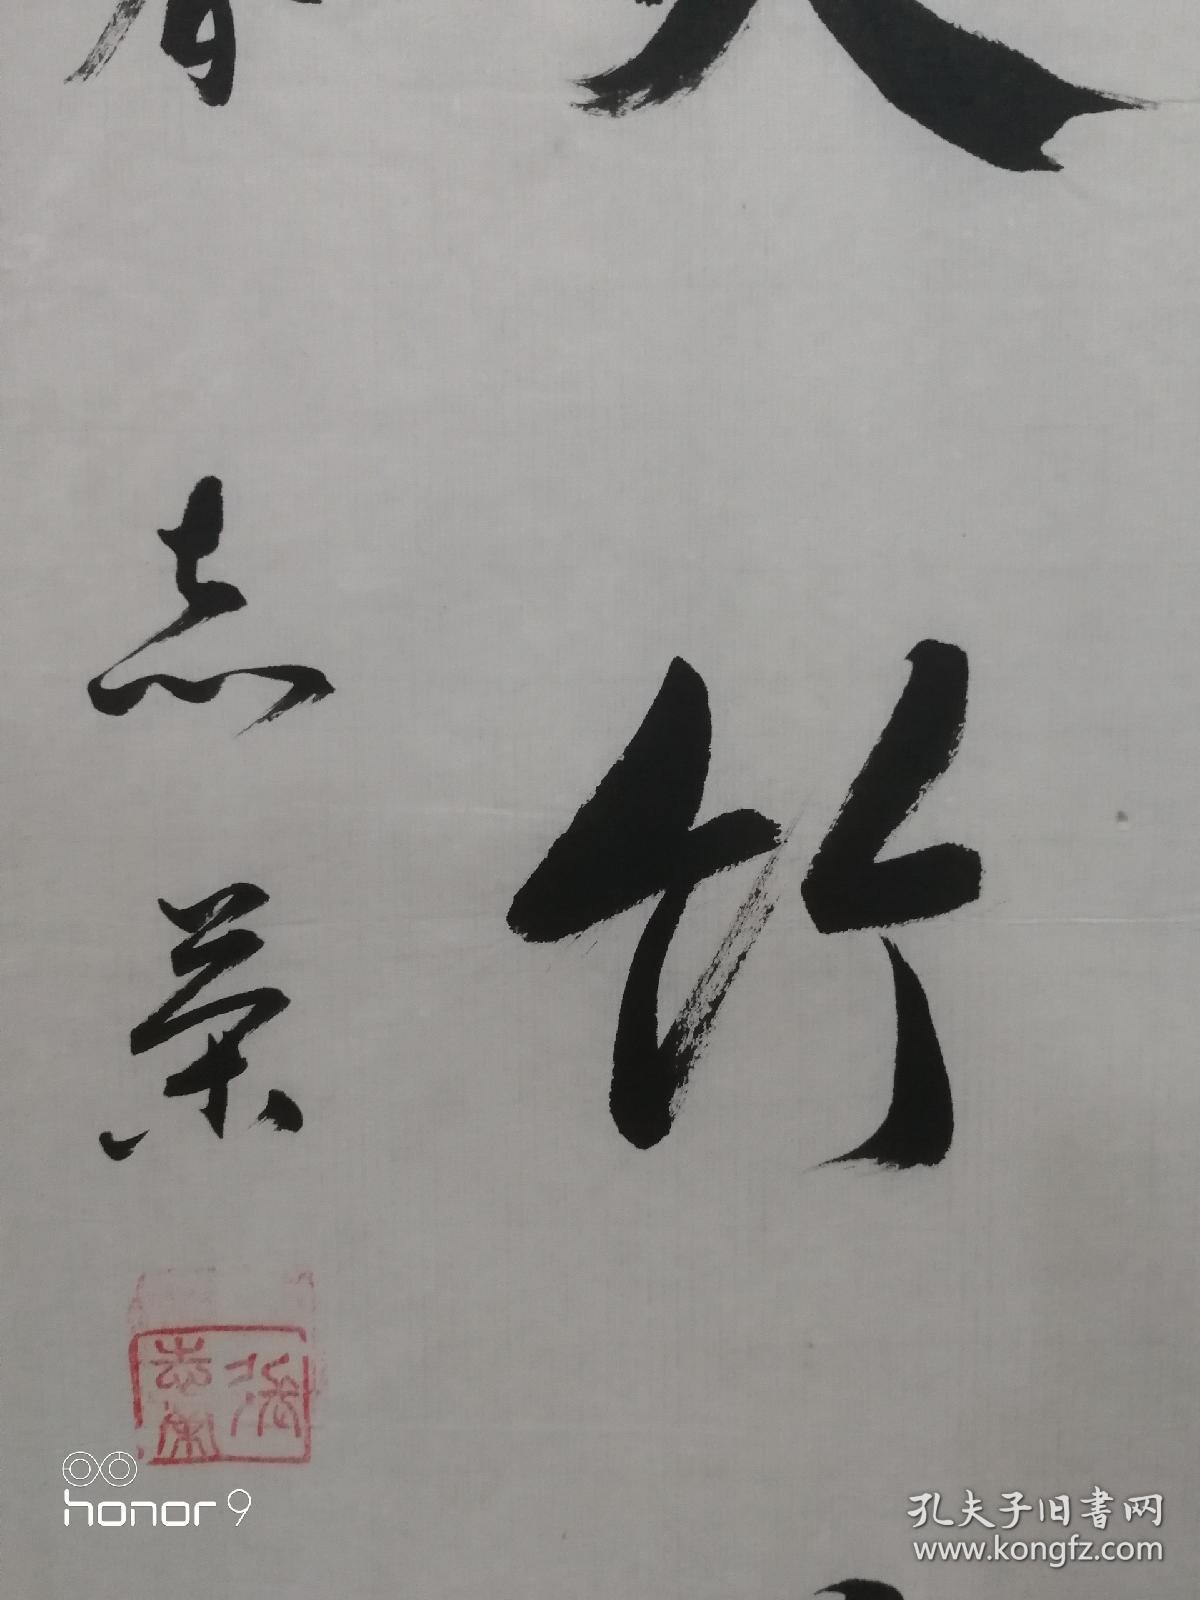 竹
春
志荣
张志荣
honor 9
孔夫子旧书网
www.kongfz.com